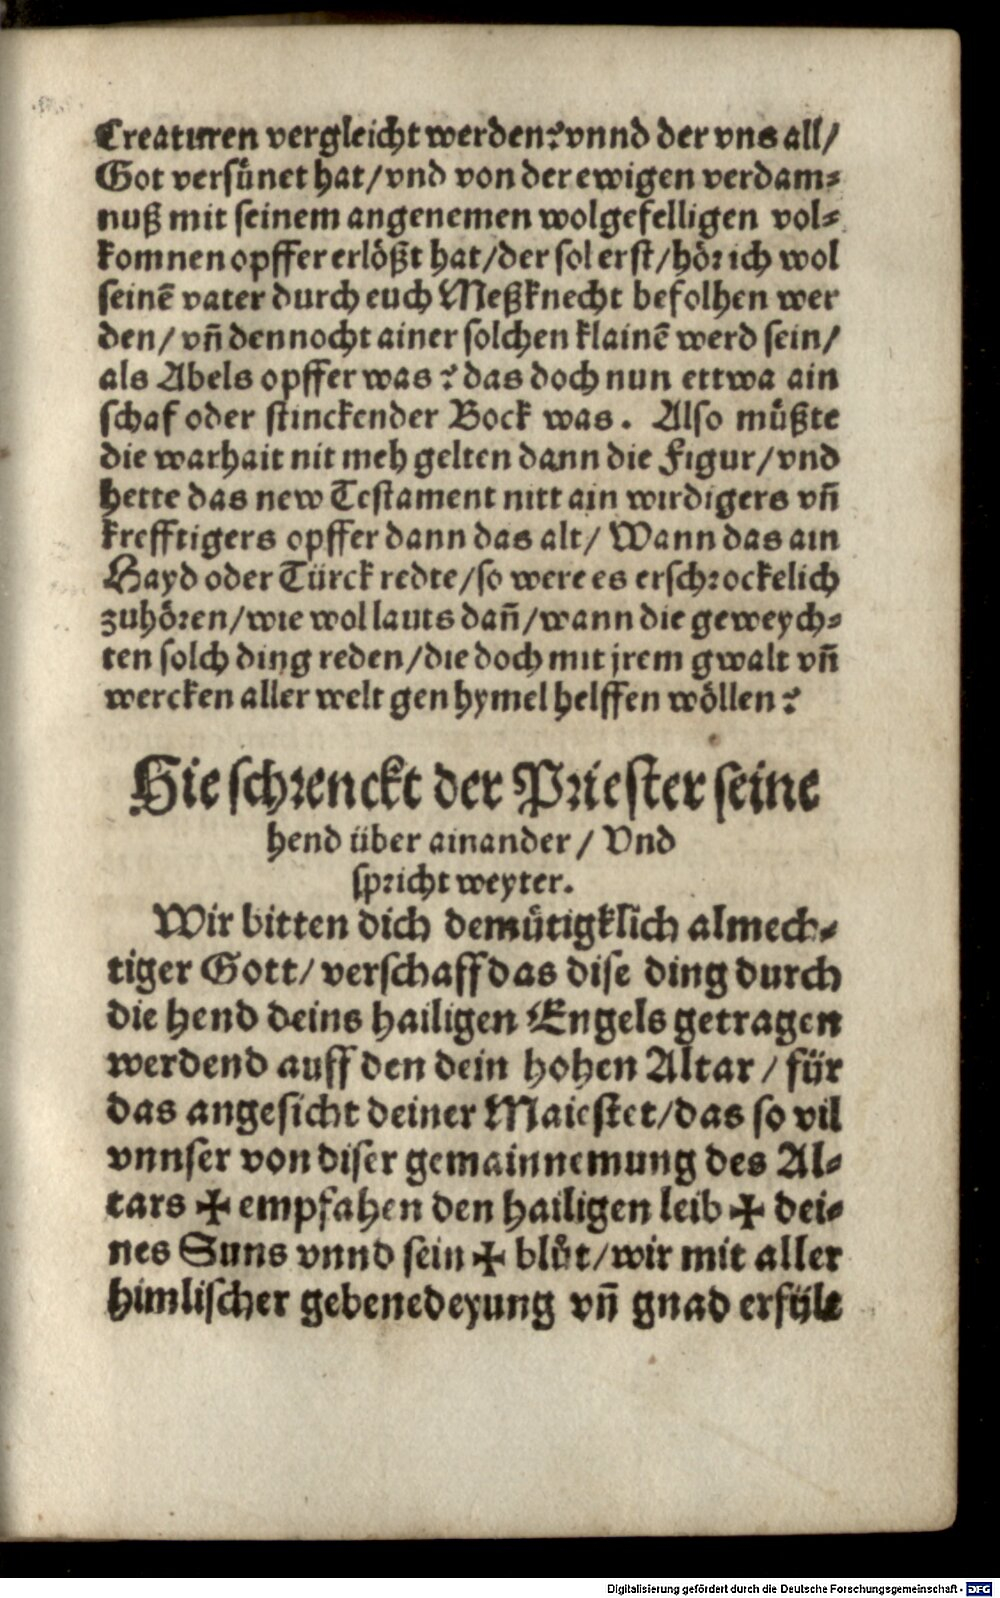 Creaturen vergleicht werden? vnnd der vns all/
Got versünet hat/ vnd von der ewigen verdam⸗
nuß mit seinem angenemen wolgefelligen vol⸗
komnen opffer erlößt hat/ der sol erst/ hör ich wol
seinē vater durch euch Meßknecht befolhen wer
den/ vñ dennocht ainer solchen klainē werd sein/
als Abels opffer was? das doch nun ettwa ain
schaf oder stinckender Bock was. Also müßte
die warhait nit meh gelten dann die Figur/ vnd
hette das new Testament nitt ain wirdigers vñ
krefftigers opffer dann das alt/ Wann das ain
Hayd oder Türck redte/ so were es erschrockelich
zuhören/ wie wol lauts dañ/ wann die geweych⸗
ten solch ding reden/ die doch mit jrem gwalt vñ
wercken aller welt gen hymel helffen wöllen?
Hie schrenckt der Priester seine
hend über ainander/ Vnd
spricht weyter.
Wir bitten dich demütigklich almech⸗
tiger Gott/ verschaff das dise ding durch
die hend deins hailigen Engels getragen
werdend auff den dein hohen Altar/ für
das angesicht deiner Maiestet/ das so vil
vnnser von diser gemainnemung des Al⸗
tars ✠ empfahen den hailigen leib ✠ dei⸗
nes Suns vnnd sein ✠ blůt/ wir mit aller
himlischer gebenedeyung vñ gnad erfült
Digitalisierung gefördert durch die Deutsche Forschungsgemeinschaft - DFG